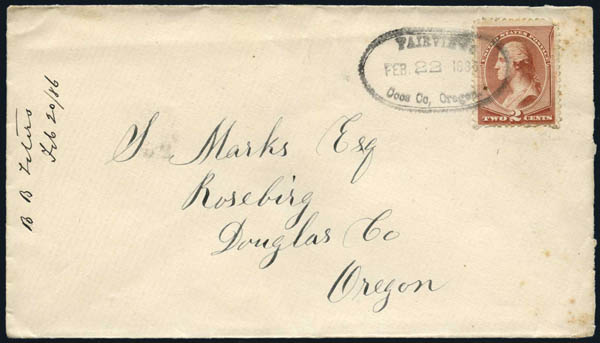 FAIRVIEW
FEB. 22 1886
Coos Co, Oregon.
UNITED STATES POSTAGE
TWO 2 CENTS
S Marks Esq
Rosebirg
Douglas Co
Oregon
B B
Feb 20/86